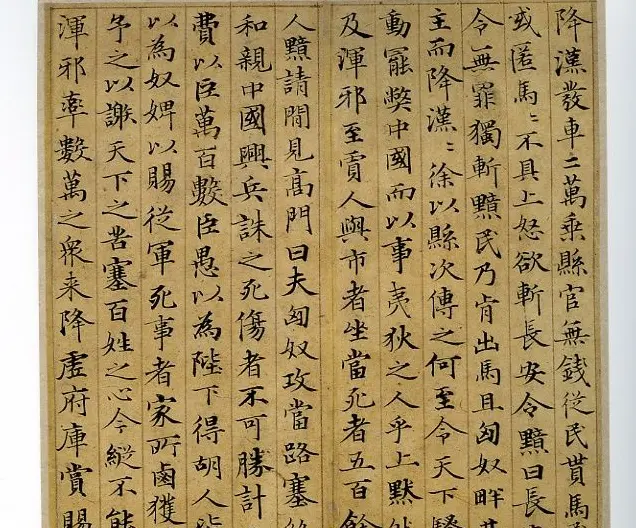 降漢發車二萬乘縣官無錢從民貰馬
或匿馬〻不具上怒欲斬長安令黯曰長
令無罪獨斬黯民乃肯出馬且匈奴畔其
主而降漢〻徐以縣次傳之何至令天下騷
動罷弊中國而以事夷狄之人乎上默然
及渾邪至賈人與市者坐當死者五百餘
人黯請間見高門曰夫匈奴攻當路塞
和親中國興兵誅之死傷者不可勝計
費以巨萬百數臣愚以為陛下得胡人皆
以為奴婢以賜從軍死事者家所鹵獲
予之以謝天下之苦塞百姓之心今縱不能
渾邪率數萬之衆来降虛府庫賞賜